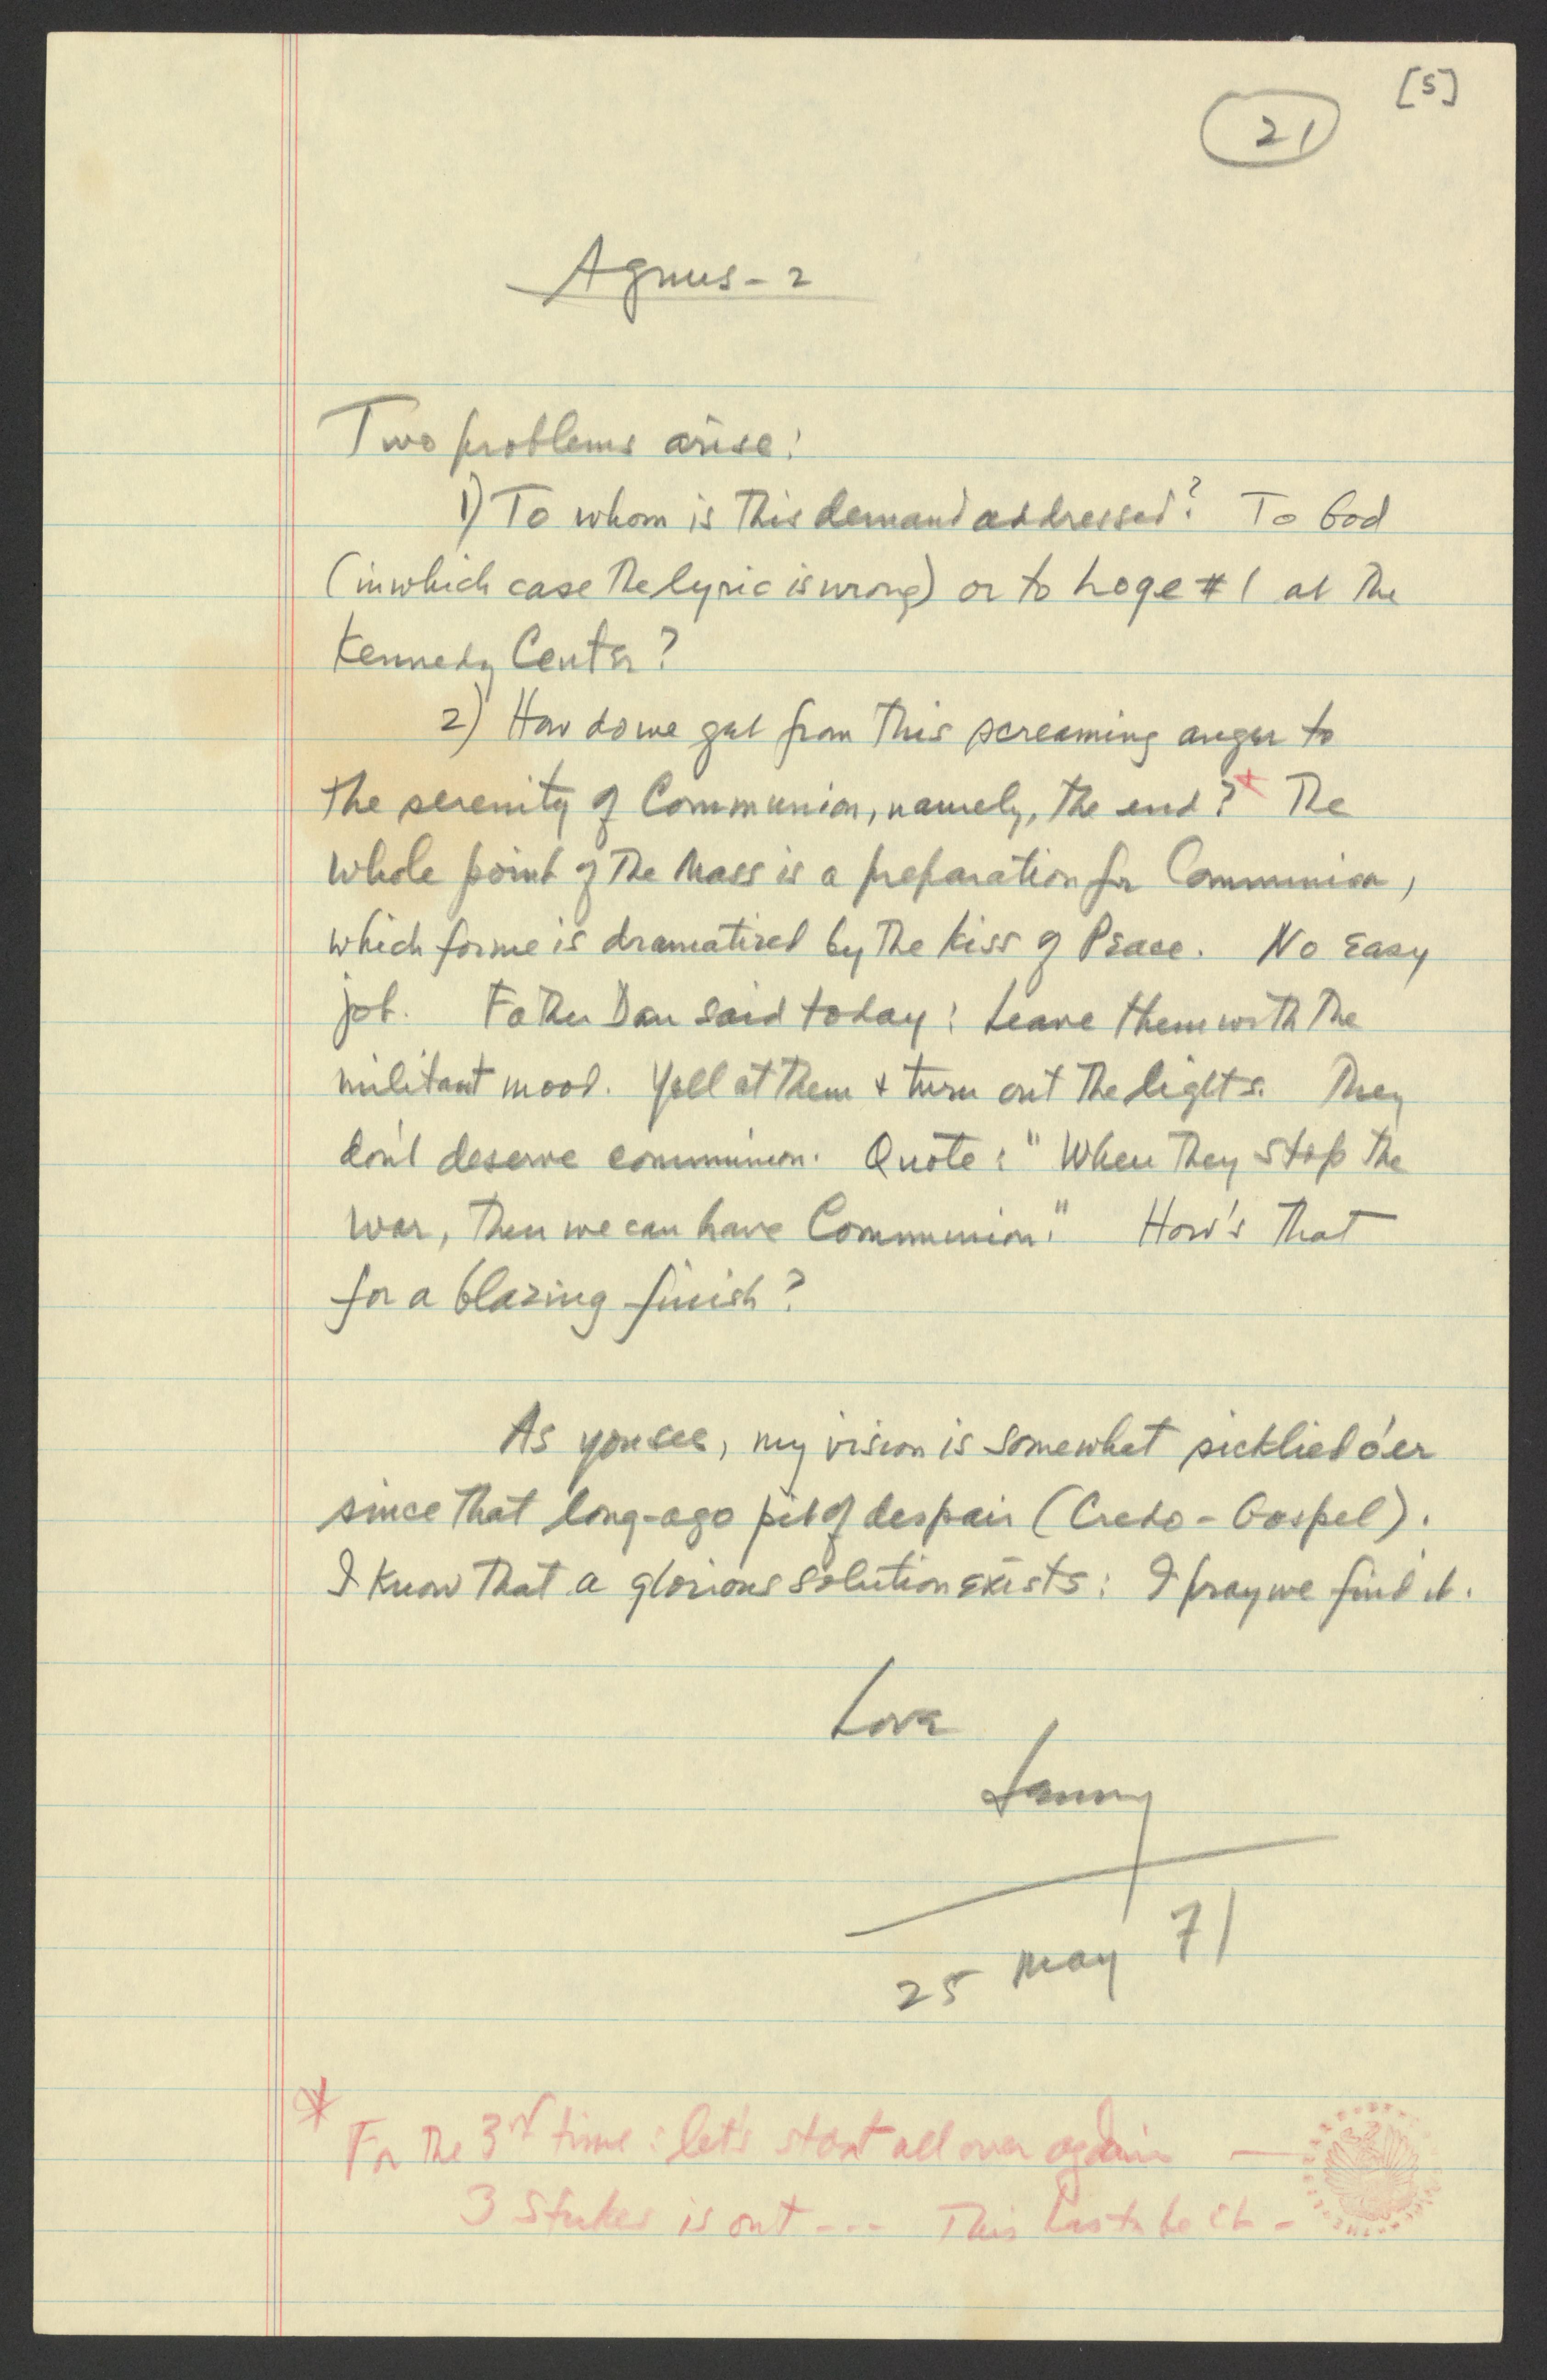 [5]
21
Agnus - 2
Two problems arise:
1) To whom is this demand addressed? To God
(in which case the lyric is wrong) or to Loge #1 at the
Kennedy Center?
2) How do we get from this screaming anger to
the serenity of Communion, namely, the end?* The
whole point of the Mass is a preparation for Communion,
which for me is dramatized by the Kiss of Peace. No easy
job. Father Dan said today: Leave them with the
militant mood. Yell at them & turn out the lights. They
don't deserve communion. Quote: "When they stop the
war, then we can have Communion." How's that
for a blazing finish?
As you see, my vision is somewhat sicklied o'er
since that long-ago pit of despair (Credo - Gospel).
I know that a glorious solution exists: I pray we find it.
Love
Lenny
25 May 71
* For the 3rd time: let's start all over again —
3 strikes is out --- This has to be it -